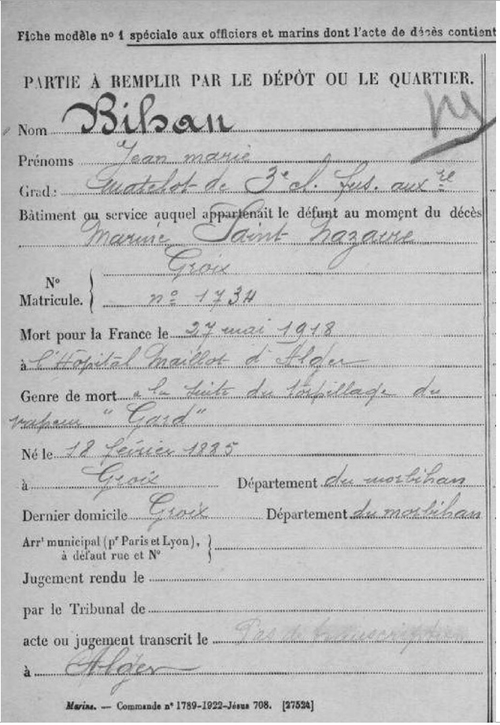 Fiche modèle nº 1 spéciale aux officiers et marins dont l'acte de décès contient
PARTIE À REMPLIR PAR LE DÉPÔT OU LE QUARTIER.
Nom Bihan
Prénoms Jean marie
Grad.: Matelot de 3e cl. fus. aux re
Bâtiment ou service auquel appartenait le défunt au moment du décès
Marine Saint Nazaire
Groix
Nº
Matricule. nº 1734
Mort pour la France le 27 mai 1918
à l'Hopital Maillot d'Alger
Genre de mort à la suite du torpillage du
vapeur "Gard"
Né le 18 février 1885
à Groix Département du morbihan
Dernier domicile Groix Département du morbihan
Arrt municipal (pr Paris et Lyon),
à défaut rue et Nº
Jugement rendu le
par le Tribunal de
acte ou jugement transcrit le Pas de transcription
à Alger
Marine. — Commande nº 1789-1922-Jésus 708. [27524]